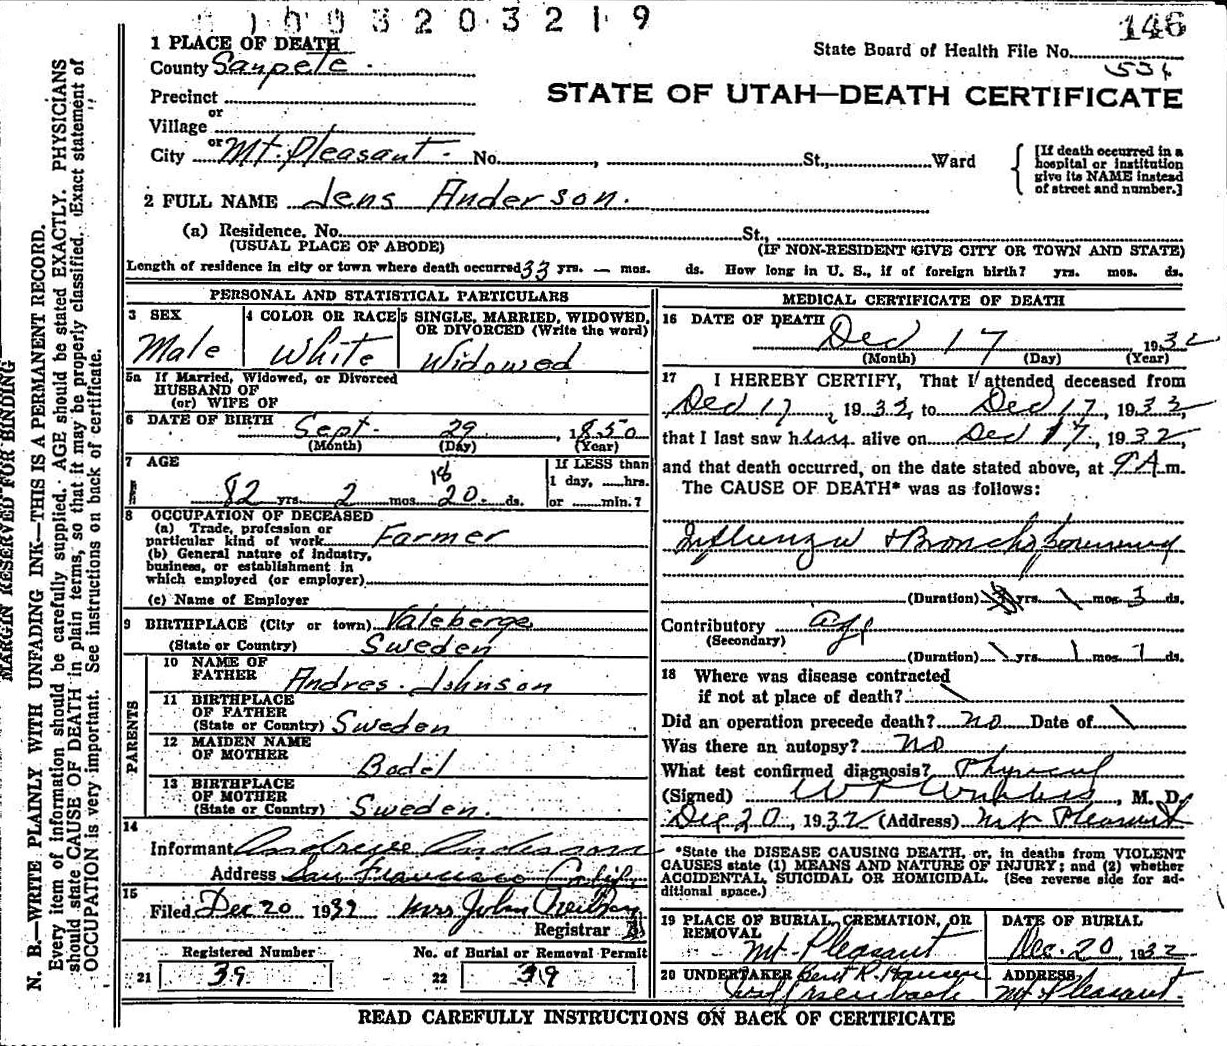 1003203219
146
State Board of Health File No.
1 PLACE OF DEATH
County Sanpete.
Precinct
or
Village
or
City Mt. Pleasant. No. , St., Ward
STATE OF UTAH—DEATH CERTIFICATE
[If death occurred in a
hospital or institution
give its NAME instead
of street and number.]
2 FULL NAME Jens Anderson.
(a) Residence. No. St.,
(USUAL PLACE OF ABODE) (IF NON-RESIDENT GIVE CITY OR TOWN AND STATE)
Length of residence in city or town where death occurred 33 yrs. — mos. ds. How long in U. S., if of foreign birth? yrs. mos. ds.
PERSONAL AND STATISTICAL PARTICULARS
3 SEX
Male
4 COLOR OR RACE
White
5 SINGLE, MARRIED, WIDOWED,
OR DIVORCED (Write the word)
Widowed
5a If Married, Widowed, or Divorced
HUSBAND OF
(or) WIFE OF
6 DATE OF BIRTH Sept. 29, 1850
(Month) (Day) (Year)
7 AGE
18
82 yrs. 2 mos. 20 ds.
If LESS than
1 day, hrs.
or min.?
8 OCCUPATION OF DECEASED
(a) Trade, profession or
particular kind of work Farmer
(b) General nature of industry,
business, or establishment in
which employed (or employer)
(c) Name of Employer
9 BIRTHPLACE (City or town) Valeberge
(State or Country) Sweden
PARENTS
10 NAME OF
FATHER Andres Johnson
11 BIRTHPLACE
OF FATHER
(State or Country) Sweden
12 MAIDEN NAME
OF MOTHER Bodel
13 BIRTHPLACE
OF MOTHER
(State or Country) Sweden.
14
Informant Anderson
Address San Francisco Calif.
15
Filed Dec 20 1932 Mrs John
Registrar
Registered Number No. of Burial or Removal Permit
21 39 22 39
MEDICAL CERTIFICATE OF DEATH
16 DATE OF DEATH
Dec 17, 1932
(Month) (Day) (Year)
17 I HEREBY CERTIFY, That I attended deceased from
Dec 17, 1932, to Dec 17, 1932,
that I last saw h alive on Dec 17, 1932,
and that death occurred, on the date stated above, at 9 A. m.
The CAUSE OF DEATH* was as follows:
Influenza + Bronchopneumonia
(Duration) yrs. mos. 3 ds.
Contributory age
(Secondary)
(Duration) yrs. mos. ds.
18 Where was disease contracted
if not at place of death?
Did an operation precede death? no Date of
Was there an autopsy? no
What test confirmed diagnosis? Physical
(Signed) , M. D.
Dec 20, 1932 (Address) Mt Pleasant
*State the DISEASE CAUSING DEATH, or, in deaths from VIOLENT
CAUSES state (1) MEANS AND NATURE OF INJURY; and (2) whether
ACCIDENTAL, SUICIDAL OR HOMICIDAL. (See reverse side for ad-
ditional space.)
19 PLACE OF BURIAL, CREMATION, OR
REMOVAL
Mt. Pleasant
DATE OF BURIAL
Dec. 20 1932
20 UNDERTAKER
ADDRESS
Mt Pleasant.
READ CAREFULLY INSTRUCTIONS ON BACK OF CERTIFICATE
MARGIN RESERVED FOR BINDING
N. B.—WRITE PLAINLY WITH UNFADING INK—THIS IS A PERMANENT RECORD.
Every item of information should be carefully supplied. AGE should be stated EXACTLY. PHYSICIANS
should state CAUSE OF DEATH in plain terms, so that it may be properly classified. Exact statement of
OCCUPATION is very important. See instructions on back of certificate.